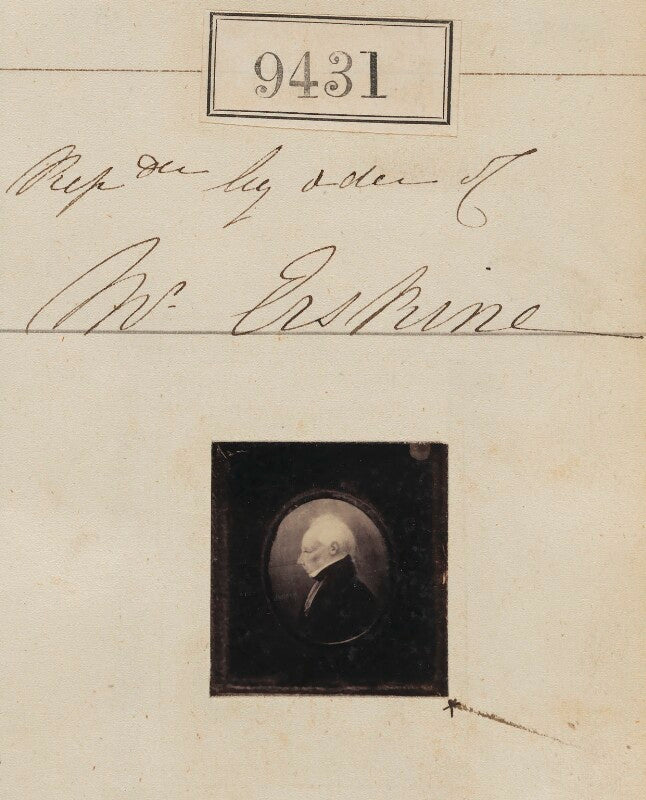 9431
Rep der by order of
Mr. Erskine